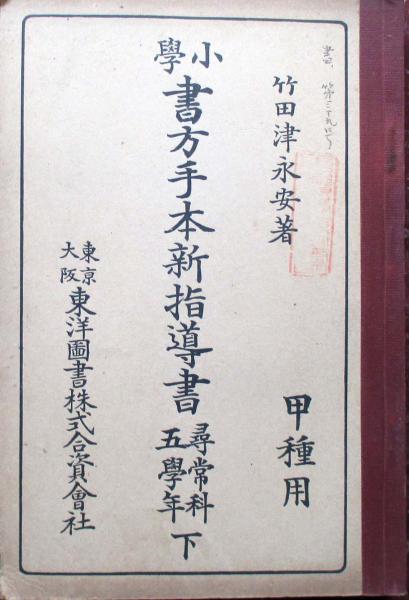 竹田津永安著
甲種用
小學書方手本新指導書 尋常科五學年 下
東京大阪 東洋圖書株式合資會社